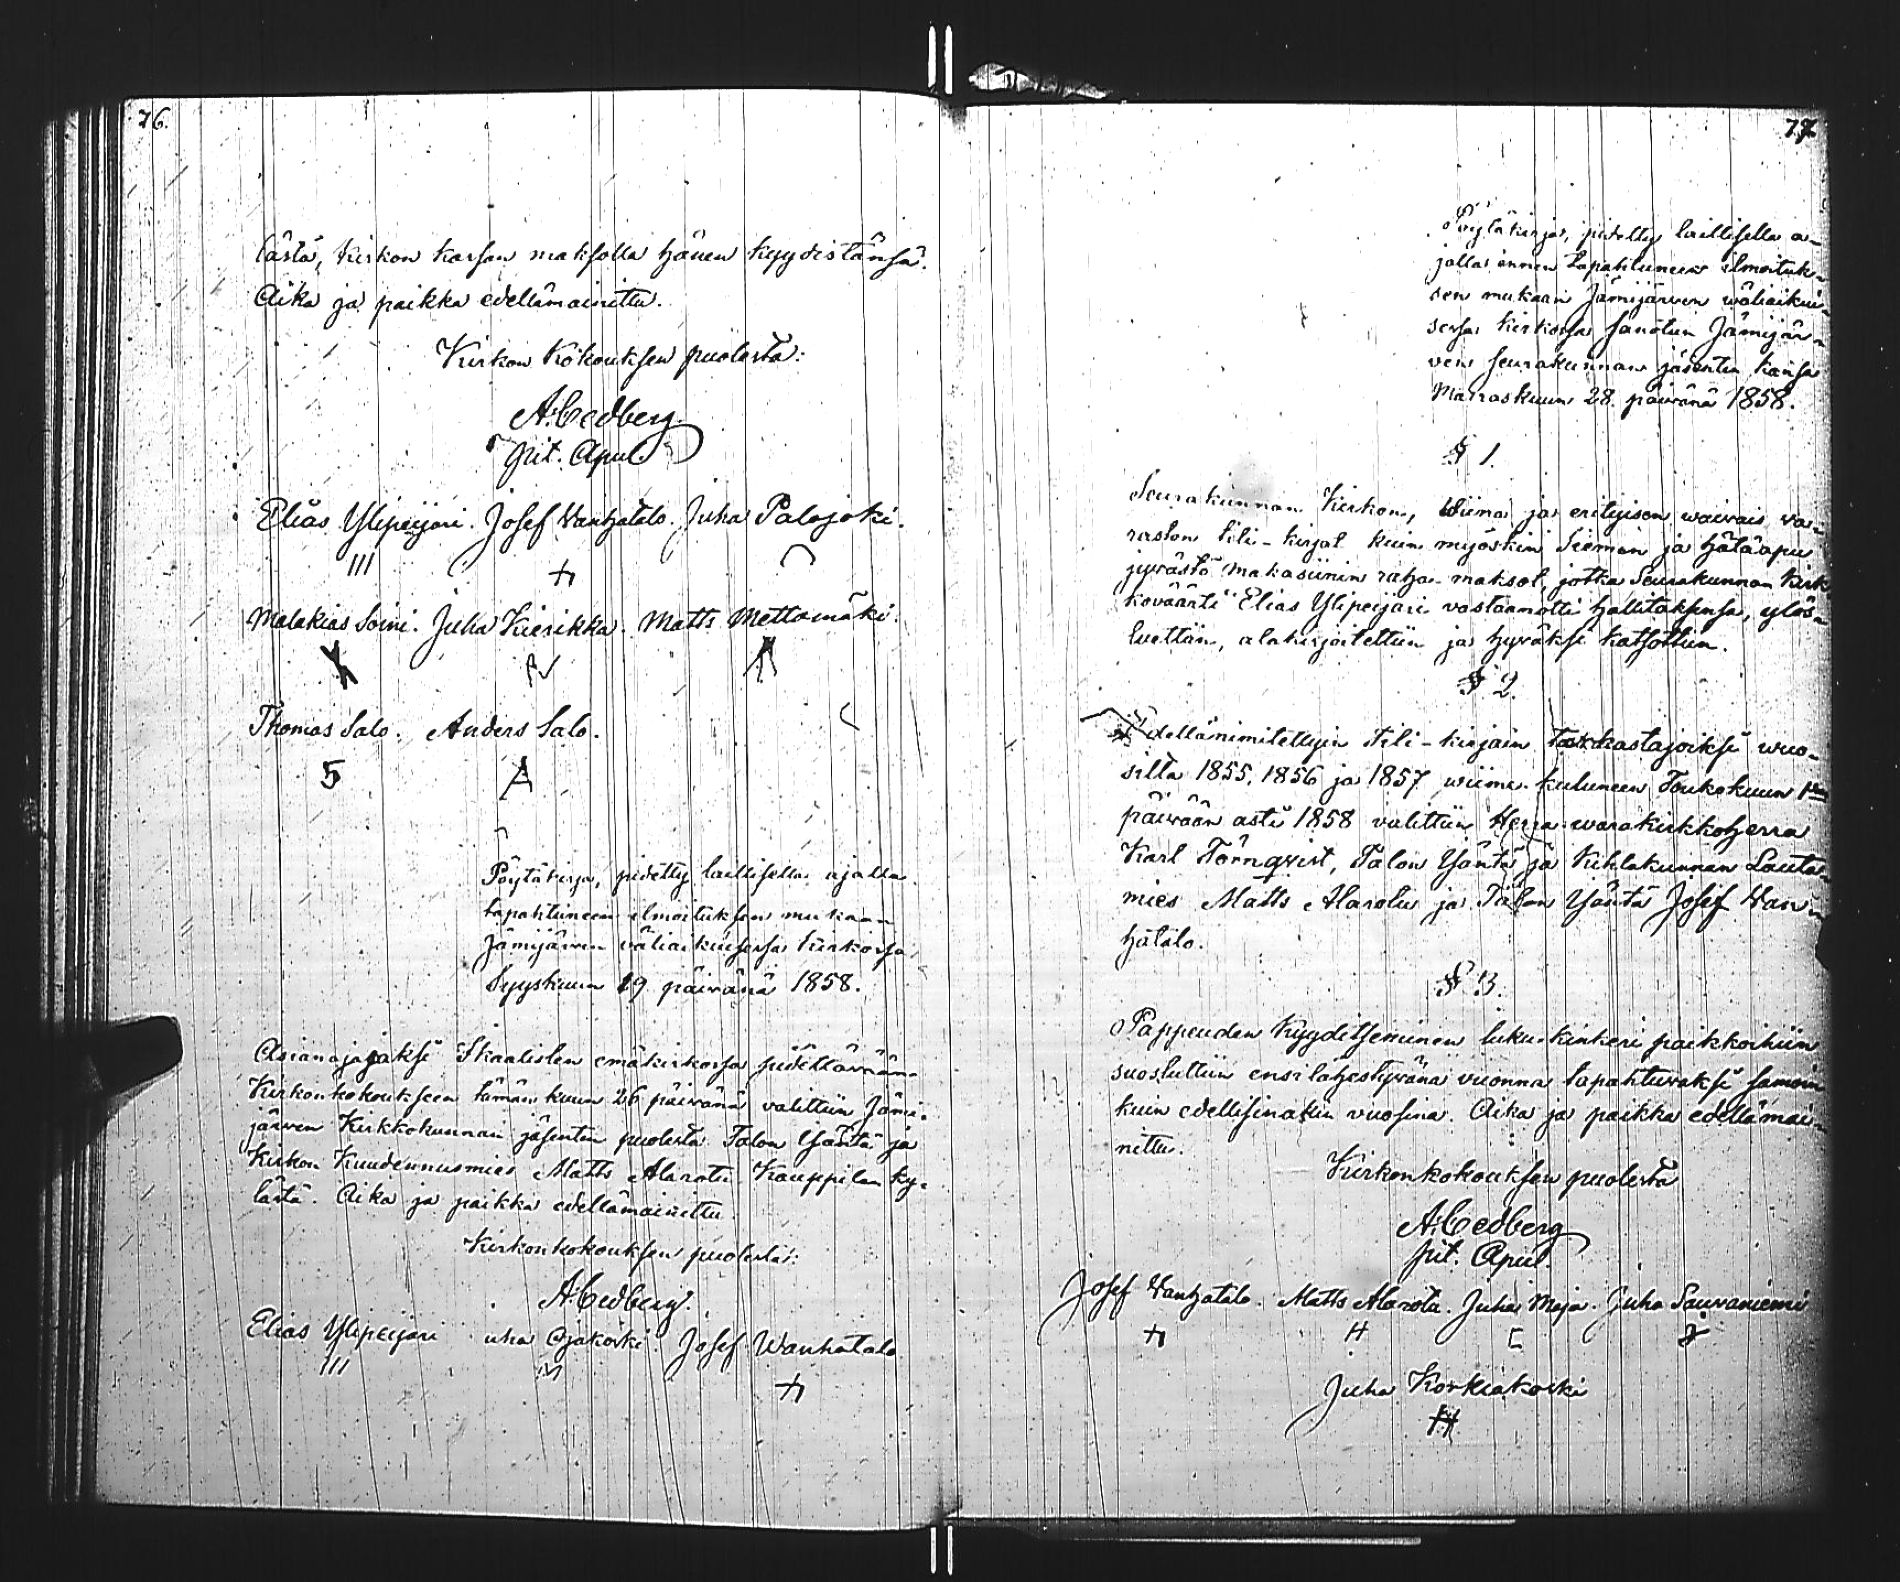 76.
lästä, Kirkon kassan maksolla hänen kyydistänsä.
Aika ja paikka edellämainittu.
Kirkon Kokouksen puolesta:
A. Cedberg.
Pit. Apul.
Elias Ylipeijari. Josef Wanhatalo. Juha Palojoki.
III
Malakias Soini. Juha Kierikka. Matts Mettomäki.
Thomas Salo. Anders Salo.
5 A
Pöytäkirja, pidetty laillisella ajalla
tapahtuneen ilmoituksen mukaan
Jämijärven väliaikuisessa kirkossa
Syyskuun 19 päivänä 1858.
Asianajajaksi Ikaalisten emäkirkossa pidettävään
Kirkonkokoukseen tämän kuun 26 päivänä valittiin Jämi-
järven Kirkkokunnan jäsenten puolesta Talon Isäntä ja
Kirkon Kuudennusmies Matts Alarotu Kauppilan ky-
lästä. Aika ja paikka edellämainittu
Kirkonkokouksen puolesta:
A. Cedberg.
Elias Ylipeijari uha Ojakoski. Josef Wanhatalo
III
77
Pöytäkirja, pidetty laillisella a-
jalla ennen tapahtuneen ilmoituk-
sen mukaan Jämijärven wäliaikui-
sessa kirkossa sanotun Jämijär-
ven seurakunnan jäsenten kansa
Marraskuun 28. päivänä 1858.
§ 1.
Seurakunnan Kirkon, Wiina ja erityisen waivais va-
raston tili-kirjat kuin myöskin Siemen ja hätäapu
jyvästö makasiinin raha-maksot, jotka Seurakunnan Kirk
koväärti Elias Ylipeijari vastaanotti hallitaksensa, ylös-
luettiin, alakirjoitettiin ja hyväksi katsottiin.
§ 2.
Edellänimitettyin tili-kirjain tarkastajoiksi wuo-
silta 1855, 1856 ja 1857 wiime kuluneen Toukokuun 1
päivään asti 1858 valittiin Herra warakirkkoherra
Karl Törnqvist, Talon Isäntä ja Kihlakunnan Lauta-
mies Matts Alarotu ja Talon Isäntä Josef Wan-
hatalo.
§ 3.
Pappeuden Kyyditseminen luku-kinkeri paikkoihin
suostuttiin ensilähestyvänä vuonna tapahtuvaksi samoin
kuin edellisinäkin vuosina. Aika ja paikka edellämai-
nittu.
Kirkonkokouksen puolesta
A. Cedberg
Pit. Apul.
Josef Wanhatalo. Matts Alarotu. Juha Maja. Juha Sauvaniemi
H
Juha Korkiakoski